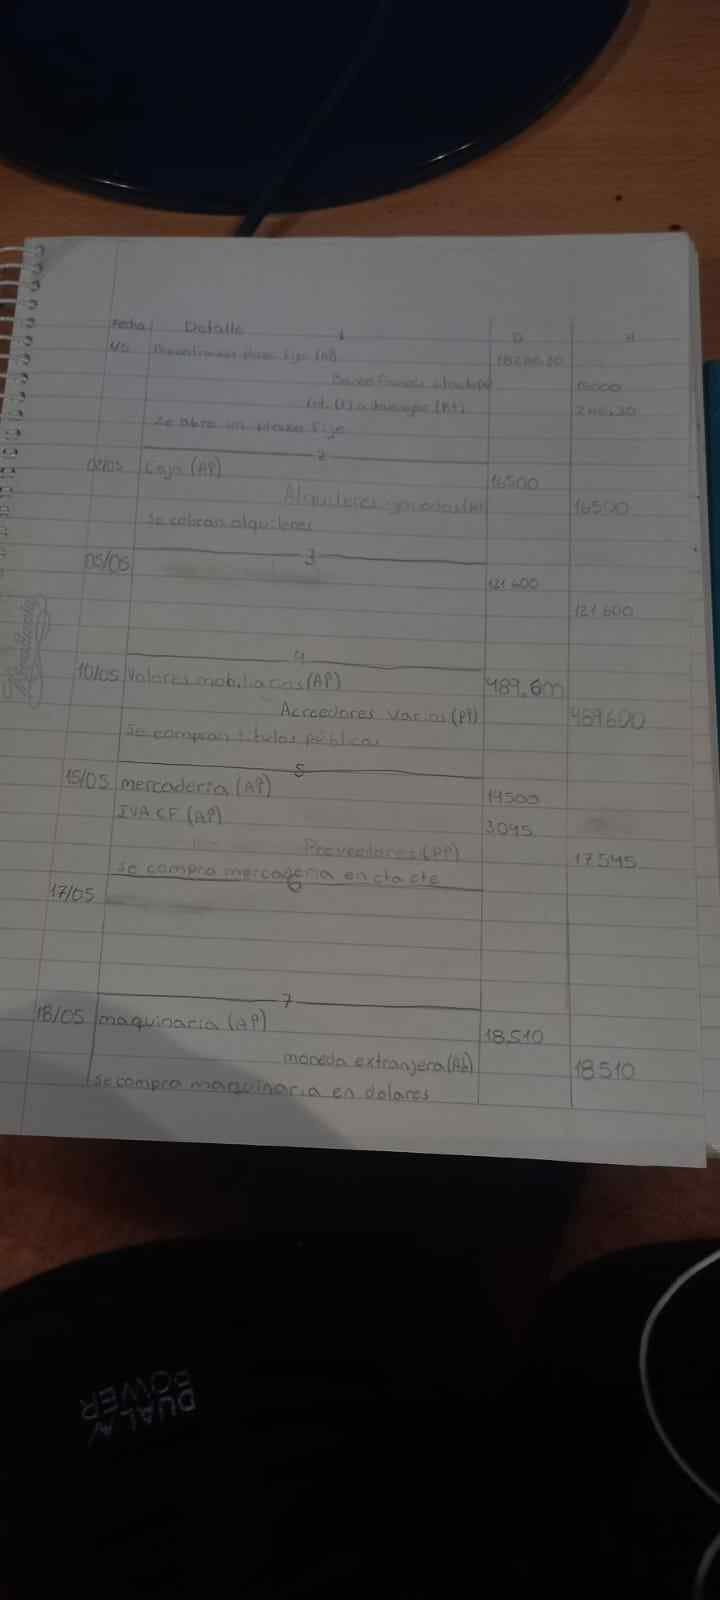 Fecha Detalle 1 D H
Plazo Fijo (A)
Banco
15000
246.30
Se abre un plazo fijo
2
02/05 Caja (AP) 16500
Alquileres 16500
Se cobran alquileres
3
05/05 121.600
121.600
4
10/05 Valores mobiliarios (AP) 489.600
Acreedores Varios (PP) 489600
Se compran titulos públicos
5
15/05 mercaderia (AP) 14500
IVA CF (AP) 3045
Proveedores (PP) 17.545
Se compra mercaderia en cta cte
6
17/05
7
18/05 maquinaria (AP) 18.510
moneda extranjera 18.510
Se compra maquinaria en dolares
DUAL
POWER